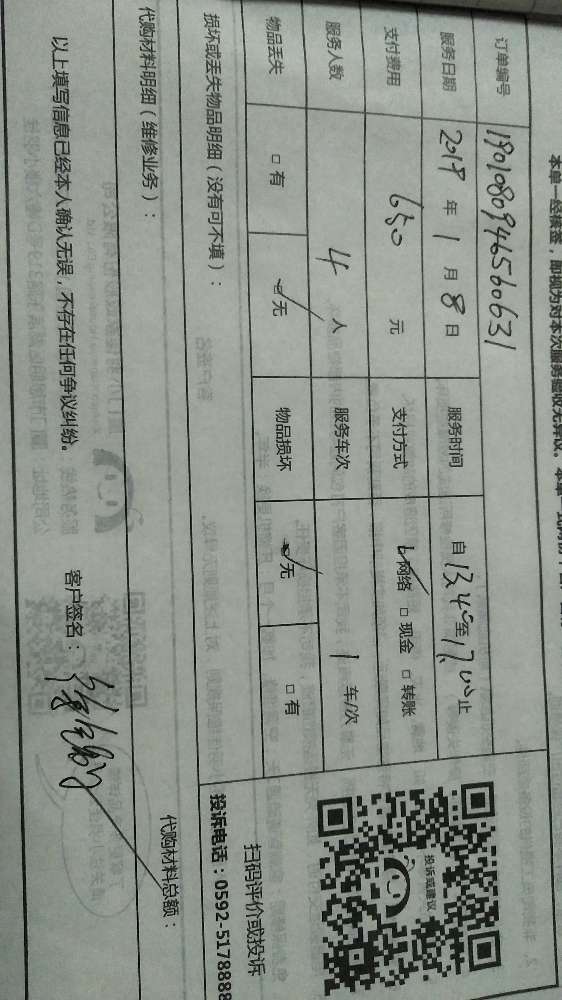 本单一经核签，即视为对本次服务验收无异议。
订单编号 1901080946560631
服务日期 2019 年 1 月 8 日 服务时间 自 13.40 至 17.00 止
支付费用 650 元 支付方式 网络 □ 现金 □ 转账
服务人数 4 人 服务车次 1 车/次
物品丢失 □ 有 无 物品损坏 无 □ 有
投诉或建议
扫码评价或投诉
投诉电话：0592-5178888
损坏或丢失物品明细（没有可不填）：
代购材料明细（维修业务）： 代购材料总额：
以上填写信息已经本人确认无误，不存在任何争议纠纷。 客户签名：